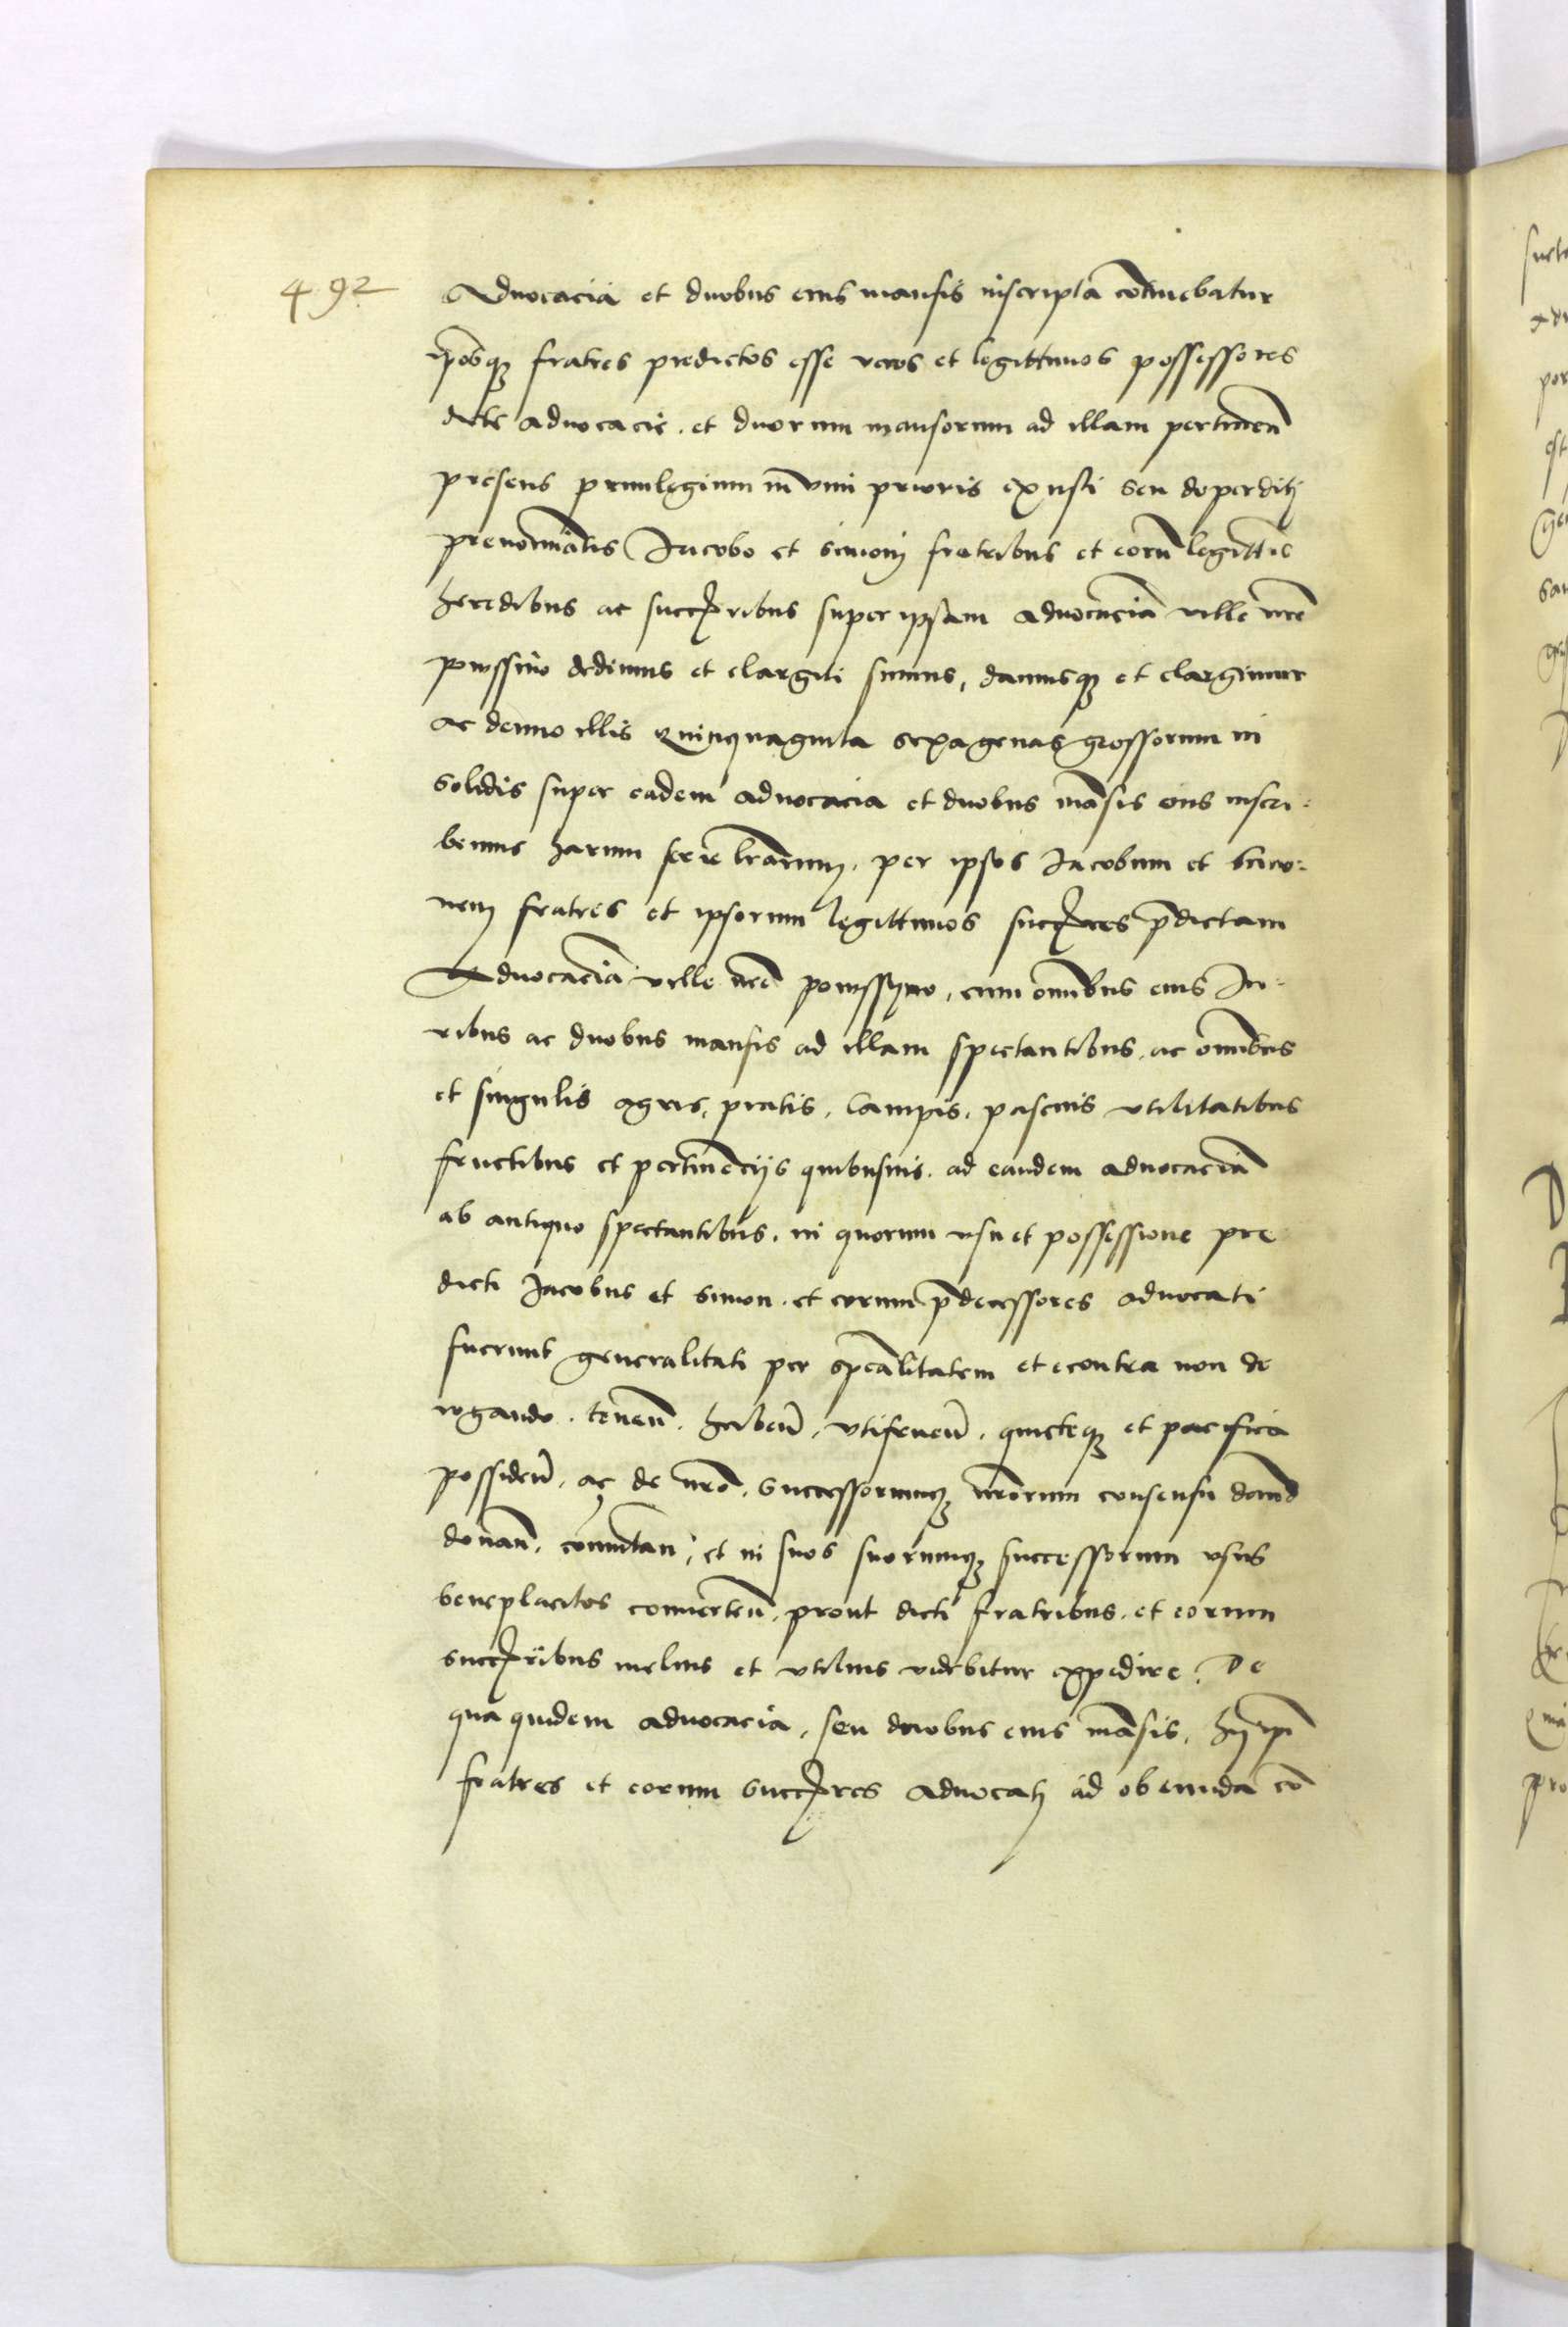 492
Advocacia et duobus eius mansis inscripta cõtinebatur
ip̃osq̃ fratres predictos esse veros et legittimos possessores
dicte advocacie . et duorum mansorum ad illam pertineñ
presens priuilegium in vim prioris exusti seu deperditi
prenoĩatis Jacobo et Simoni fratribus et eorũ legittĩs
heredibus ac succ̃oribus super ipsam advocaciã ville nr̃e
powssino dedimus et elargiti sumus, damusq̃ et elargimur
ac denuo illis Quinquaginta sexagenas grossorum in
solidis super eadem advocacia et duobus mãsis eius inscri:
bimus harum serie lr̃arum, per ipsos Jacobum et Simo:
nem fratres et ipsorum legittimos succ̃ores p̃dictam
Advocaciã ville nr̃e powssyno, cum om̃ibus eius Ju:
ribus ac duobus mansis ad illam spectantibus, ac om̃ibus
et singulis agris, pratis, campis, pascuis vtilitatibus
fructibus et pertinẽcijs quibusuis, ad eandem advocaciã
ab antiquo spectantibus, in quorum vsu et possessione pre
dicti Jacobus et Simon, et eorum p̃decessores advocati
fuerunt generalitati per sp̃ealitatem et econtra non de
rogando . teneñ . habeñ, vtifrueñ, quieteq̃ et pacifice
possideñ, ac de nr̃o, successorumq̃ nr̃orum consensu dañd
donañ, cõmutañ, et in suos suorumq̃ successorum vsus
beneplacitos conuerteñ, prout dictis fratribus, et eorum
succ̃oribus melius et vtilius videbitur expedire, De
qua quidem advocacia, seu duobus eius mãsis, hij ip̃i
fratres et eorum succ̃ores advocati ad obeunda cõ